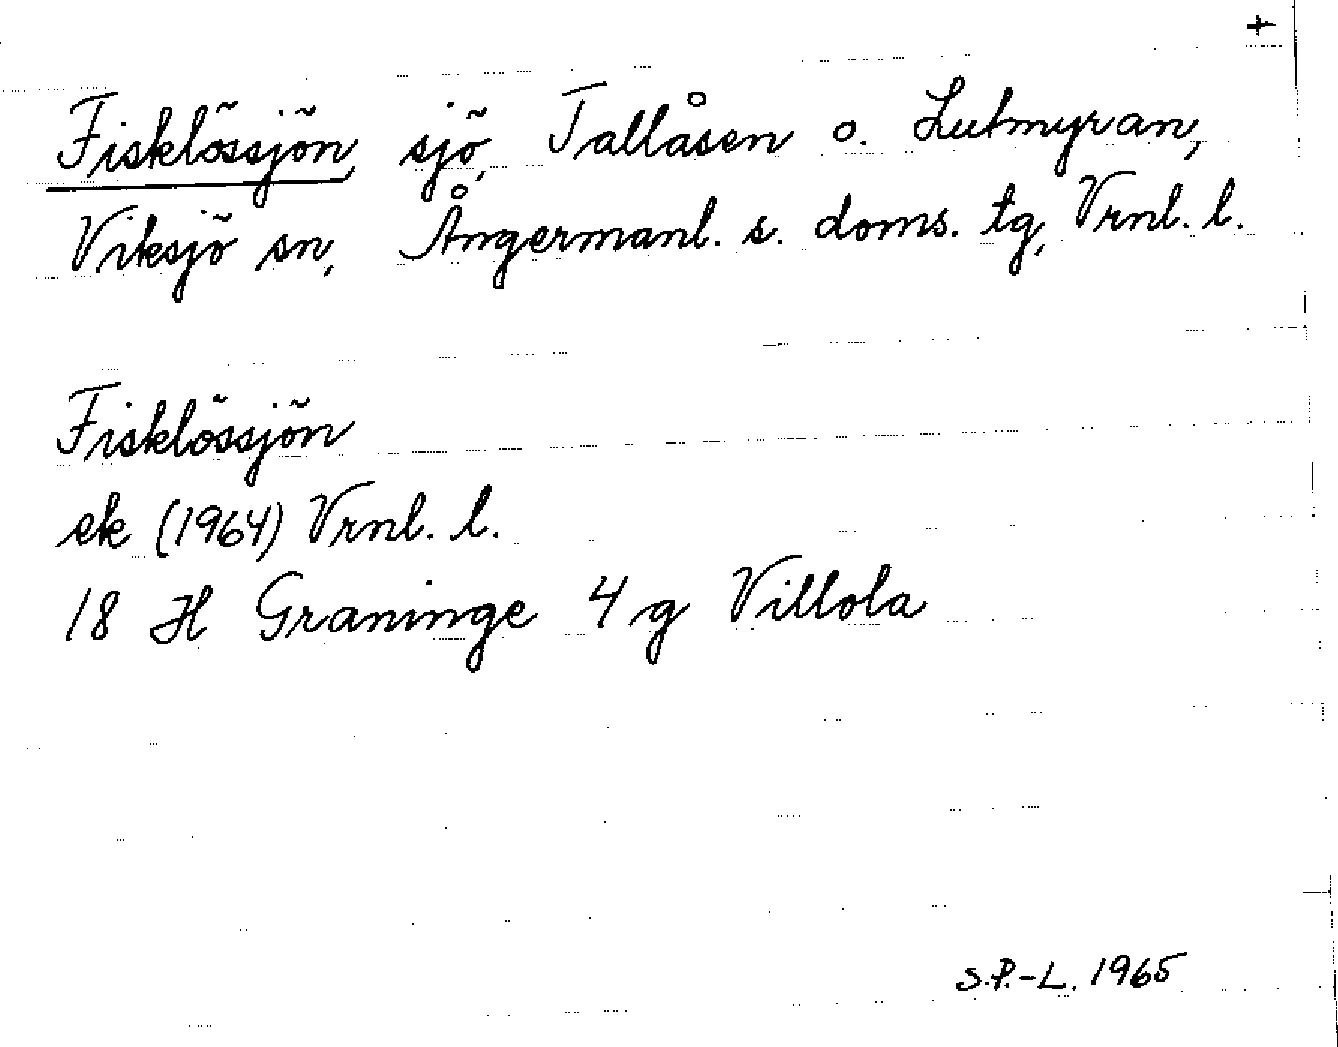 +
Fisklössjön, sjö, Tallåsen o. Lutmyran,
Viksjö sn, Ångermanl. s. doms. tg, Vrnl. l.
Fisklössjön
ek (1964) Vrnl. l.
18 H Graninge 4 g Villola
S.P.-L. 1965